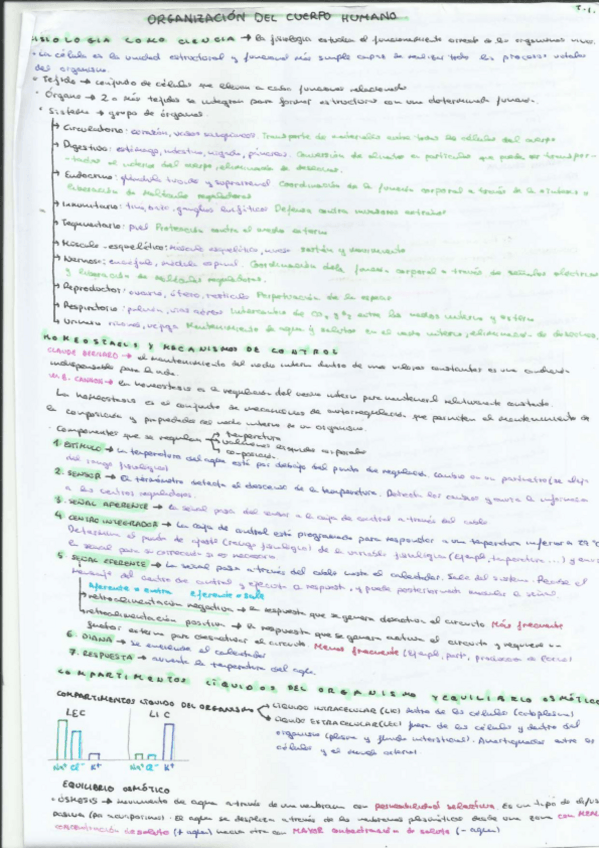 T.1.
ORGANIZACIÓN DEL CUERPO HUMANO
FISIOLOGIA COMO CIENCIA → la fisiologia estudia el funcionamiento correcto de los organismos vivos.
• La célula es la unidad estructural y funcional más simple capaz de realizar todos los procesos vitales
del organismo.
• Tejido → conjunto de células que llevan a cabo funciones relacionadas
• Órgano → 2 o más tejidos se integran para formar estructuras con una determinada función.
• Sistema → grupo de órganos.
→ Circulatorio: corazón, vasos sanguíneos Transporte de materiales entre todas las células del cuerpo
→ Digestivo: estómago, intestino, hígado, páncreas. Conversión de alimentos en partículas que puedan ser transpor-
tadas al interior del cuerpo, eliminación de desechos.
→ Endocrino: glándula tiroides y suprarrenal Coordinación de la función corporal a través de la síntesis y
liberación de moléculas reguladoras
→ Inmunitario: timo, bazo, ganglios linfáticos Defensa contra invasores extraños
→ Tegumentario: piel Protección contra el medio externo
→ Músculo-esquelético: músculo esquelético, hueso sostén y movimiento
→ Nervioso: encéfalo, médula espinal. Coordinación de la función corporal a través de señales eléctricas
y liberación de moléculas reguladoras.
→ Reproductor: ovario, útero, testículo Perpetuación de la especie
→ Respiratorio: pulmón, vías aéreas Intercambio de CO₂ y O₂ entre los medios interno y externo
→ Urinario riñones, vejiga Mantenimiento de agua y solutos en el medio interno, eliminación de desechos.
HOMEOSTASIS Y MECANISMOS DE CONTROL
CLAUDE BERNARD → el mantenimiento del medio interno dentro de unos valores constantes es una condición
indispensable para la vida.
W.B. CANNON → la homeostasis es la regulación del medio interno para mantenerlo relativamente constante.
La homeostasis es el conjunto de mecanismos de autorregulación que permiten el mantenimiento de
la composición y propiedades del medio interno de un organismo.
• Componentes que se regulan → temperatura
→ volúmenes líquidos corporales
→ composición
1. ESTÍMULO → la temperatura del agua está por debajo del punto de regulación. Cambio en un parámetro (se aleja
del rango fisiológico)
2. SENSOR → el termómetro detecta el descenso de la temperatura. Detecta los cambios y envía la información
a los centros reguladores.
3. SEÑAL AFERENTE → la señal pasa del sensor a la caja de control a través del cable
4. CENTRO INTEGRADOR → La caja de control está programada para responder a una temperatura inferior a
Determina el punto de ajuste (rango fisiológico) de la variable fisiológica (Ejempl, temperatura ...) y envía
la señal para su corrección si es necesario
5. SEÑAL EFERENTE → La señal pasa a través del cable hasta el calentador. Sale del sistema. Recibe el
mensaje del centro de control y ejecuta la respuesta, y puede posteriormente modular la señal.
Aferente → entra eferente → sale
→ retroalimentación negativa → la respuesta que se genera desactiva el circuito Más frecuente
→ retroalimentación positiva → la respuesta que se genera activa el circuito y requiere un
factor externo para desactivar el circuito. Menos frecuente (Ejempl, parto,
6. DIANA → se enciende el calentador
7. RESPUESTA → aumenta la temperatura del agua.
COMPARTIMENTOS LÍQUIDOS DEL ORGANISMO Y EQUILIBRIO OSMÓTICO
COMPARTIMENTOS LÍQUIDO DEL ORGANISMO
LÍQUIDO INTRACELULAR (LIC) dentro de las células (citoplasma)
LÍQUIDO EXTRACELULAR (LEC) fuera de las células y dentro del
organismo (plasma y fluido intersticial). Amortiguador entre las
células y el medio externo.
LEC LIC
Na⁺ Cl⁻ K⁺ Na⁺ Cl⁻ K⁺
EQUILIBRIO OSMÓTICO
• OSMOSIS → movimiento de agua a través de una membrana con permeabilidad selectiva. Es un tipo de difusión
pasiva (por acuaporinas). El agua se desplaza a través de las membranas plasmáticas desde una zona con MENOR
concentración de soluto (+ agua) hacia otra con MAYOR concentración de soluto (- agua)